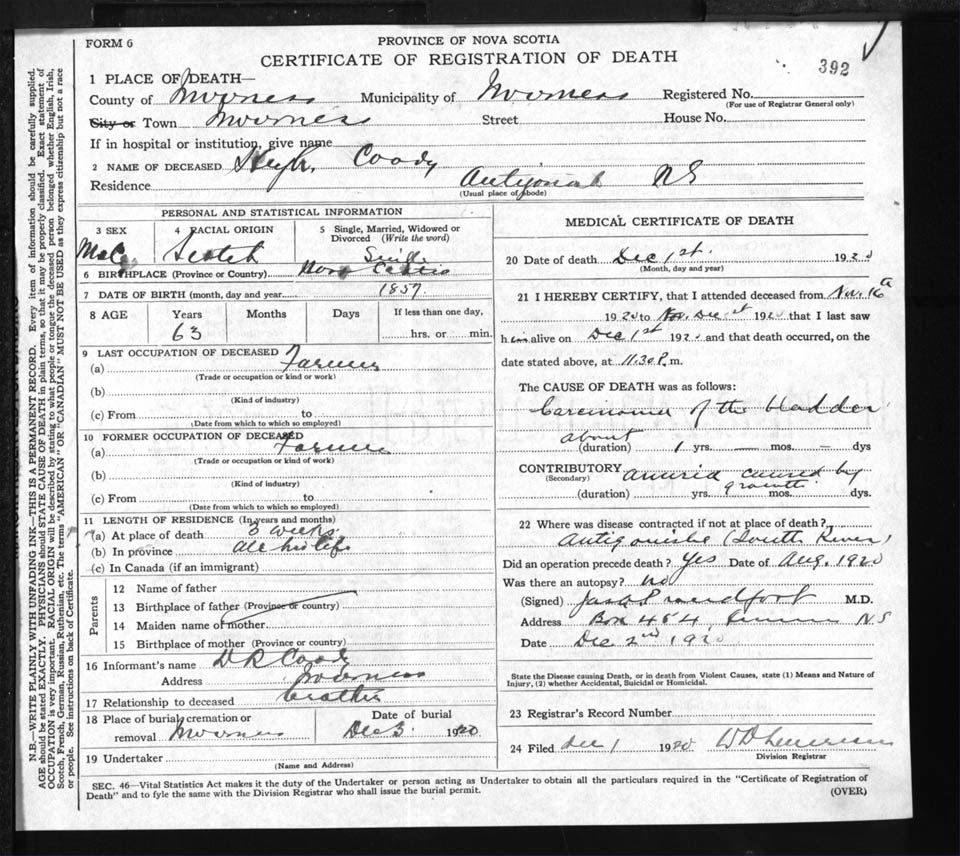 FORM 6
PROVINCE OF NOVA SCOTIA
CERTIFICATE OF REGISTRATION OF DEATH
392
1 PLACE OF DEATH—
County of Inverness Municipality of Inverness Registered No.
(For use of Registrar General only)
City or Town Inverness Street House No.
If in hospital or institution, give name
2 NAME OF DECEASED Hugh Coady
Residence Antigonish N S
(Usual place of abode)
PERSONAL AND STATISTICAL INFORMATION
3 SEX 4 RACIAL ORIGIN 5 Single, Married, Widowed or Divorced (Write the word)
Male Scotch Single
6 BIRTHPLACE (Province or Country) Nova Scotia
7 DATE OF BIRTH (month, day and year) 1857
8 AGE Years Months Days If less than one day,
63 hrs. or min.
9 LAST OCCUPATION OF DECEASED
(a) Farmer
(Trade or occupation or kind or work)
(b)
(Kind of industry)
(c) From to
(Date from which to which so employed)
10 FORMER OCCUPATION OF DECEASED
(a) Farmer
(Trade or occupation or kind or work)
(b)
(Kind of industry)
(c) From to
(Date from which to which so employed)
11 LENGTH OF RESIDENCE (In years and months)
(a) At place of death 3 weeks
(b) In province all his life
(c) In Canada (if an immigrant)
Parents
12 Name of father
13 Birthplace of father (Province or country)
14 Maiden name of mother
15 Birthplace of mother (Province or country)
16 Informant's name D R Coady
Address Inverness
17 Relationship to deceased brother
18 Place of burial, cremation or Date of burial
removal Inverness Dec 3 1920
19 Undertaker
(Name and Address)
MEDICAL CERTIFICATE OF DEATH
20 Date of death Dec 1st 1920
(Month, day and year)
21 I HEREBY CERTIFY, that I attended deceased from Nov. 16th
1920 to Nov. Dec 1st 1920 that I last saw
him alive on Dec 1st 1920 and that death occurred, on the
date stated above, at 11.30 P.m.
The CAUSE OF DEATH was as follows:
Carcinoma of the bladder
about
(duration) 1 yrs. — mos. — dys
CONTRIBUTORY anuria caused by
(Secondary) growth
(duration) yrs. mos. dys.
22 Where was disease contracted if not at place of death?
Antigonishe (South River)
Did an operation precede death? Yes Date of Aug. 1920
Was there an autopsy? no
(Signed) M.D.
Address Box 454, N S
Date Dec 2nd 1920
State the Disease causing Death, or in death from Violent Causes, state (1) Means and Nature of
Injury, (2) whether Accidental, Suicidal or Homicidal.
23 Registrar's Record Number
24 Filed Dec 1 1920
Division Registrar
SEC. 46—Vital Statistics Act makes it the duty of the Undertaker or person acting as Undertaker to obtain all the particulars required in the "Certificate of Registration of
Death" and to fyle the same with the Division Registrar who shall issue the burial permit. (OVER)
N.B.—WRITE PLAINLY WITH UNFADING INK—THIS IS A PERMANENT RECORD. Every item of information should be carefully supplied.
AGE should be stated EXACTLY. PHYSICIANS should STATE CAUSE OF DEATH in plain terms, so that it may be properly classified. Exact statement of
OCCUPATION is very important. RACIAL ORIGIN will be described by stating to what people or tongue the deceased person belonged whether English, Irish,
Scotch, French, German, Russian, Ruthenian, etc. The terms "AMERICAN" OR "CANADIAN" MUST NOT BE USED as they express citizenship but not a race
or people. See instructions on back of Certificate.